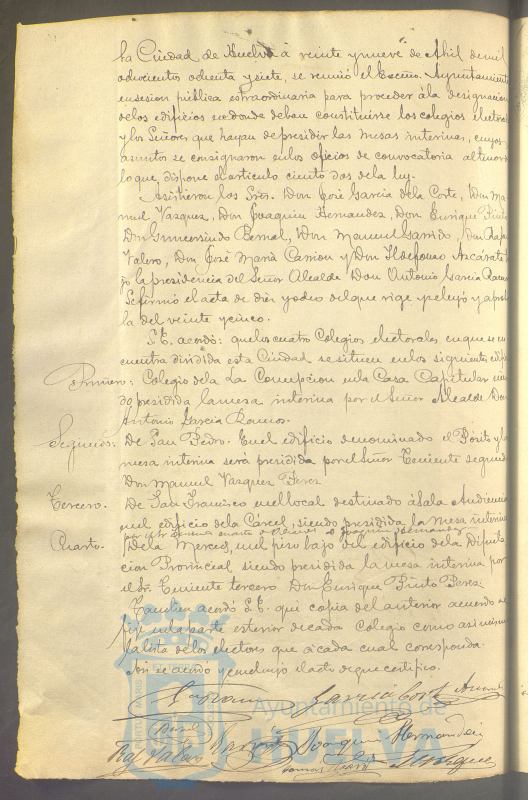 la Ciudad de Huelva à veinte y nueve de Abril de mil
ochocientos ochenta y siete, se reunió el Excmo. Ayuntamiento
en sesion pública estraordinaria para proceder à la designacion
de los edificios en donde deban constituirse los colegios electoral
y los Señores que hayan de presidir las mesas interinas, cuyos
asuntos se consignaron en los oficios de convocatoria al tenor de
lo que dispone el articulo ciento dos de la ley.
Asistieron los Sres. Don José Garcia de la Corte, Don Ma
nuel Vazquez, Don Joaquin Hernandez, Don Enrique Pinto
Don Gumersindo Bernal, Don Manuel Garrido, Don Rafael
Valero, Don José Maria Carrion y Don Ildefonso Azcarate ba
jo la presidencia del Señor Alcalde Don Antonio Garcia Ramos
Se firmó el acta de diez y ocho del que rige y se leyó y aprobó
la del veinte y cinco.
S.E. acordó: que los cuatro Colegios electorales en que se en
cuentra dividida esta Ciudad se situen en los siguientes edificios
Primero: Colegio de la La Concepcion en la Casa Capitular sien
do presidida la mesa interina por el Señor Alcalde Don
Antonio Garcia Ramos.
Segundo: De San Pedro. En el edificio denominado el Pósito y la
mesa interina será presidida por el Señor Teniente segundo
Don Manuel Vazquez Perez
Tercero. De San Francisco en el local destinado à Sala Audiencia
en el edificio de la Cárcel, siendo presidida la mesa interina
por el Joaquin Hernandez
Cuarto. De la Merced, en el piso bajo del edificio de la Diputa
cion Provincial siendo presidida la mesa interina por
el Sr. Teniente tercero Don Enrique Pinto Perea.
Tambien acordó S.E. que copia del anterior acuerdo se
fije en la parte exterior de cada Colegio como asi mismo
la lista de los electores que à cada cual corresponda.
Asi se acordó y concluyó el acto de que certifico.
Garcia Corte
Bernal
Raf Valero Joaquin Hernandez
Vazquez
Ayuntamiento de
HUELVA